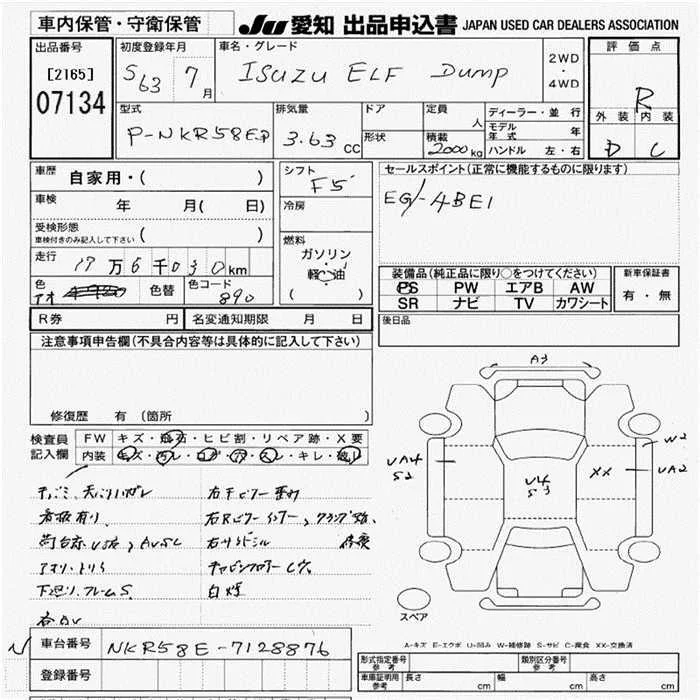 車内保管・守衛保管
JU 愛知 出品申込書 JAPAN USED CAR DEALERS ASSOCIATION
出品番号
[2165]
07134
初度登録年月
S63 7月
車名・グレード
ISUZU ELF Dump
2WD
・
4WD
評価点
R
外装 内装
D C
型式
P-NKR58EP
排気量
3.63 cc
ドア
形状
定員
人
積載
2000 kg
ディーラー・並行
モデル年式 年
ハンドル 左・右
車歴
自家用・( )
車検
年 月( 日)
受検形態
車検付きのみ記入して下さい ( )
走行
17万6千030km
色
アオ
色替
色コード
890
シフト
F5
冷房
燃料
ガソリン
・
軽油
( )
セールスポイント(正常に機能するものに限ります)
EG/-4BE1
装備品(純正品に限り○をつけてください)
PS PW エアB AW
SR ナビ TV カワシート
新車保証書
有・無
R券 円
名変通知期限 月 日
後日品
注意事項申告欄(不具合内容等は具体的に記入して下さい)
修復歴 有 (箇所 )
検査員
記入欄
FW キズ・飛石・ヒビ割・リペア跡・X要
内装 キズ・汚レ・コゲ・穴・スレ・キレ・破レ
看板有り
下廻り.フレームS.
白煙
A3
UA4
S2
U4
S3
XX
W2
UA2
スペア
A-キズ E-エクボ U-凹み W-補修跡 S-サビ C-腐食 XX-交換済
車台番号
NKR58E-7128876
登録番号
形式指定番号
参考
類別区分番号
参考
車庫証明用
参考
長さ cm
幅 cm
高さ cm